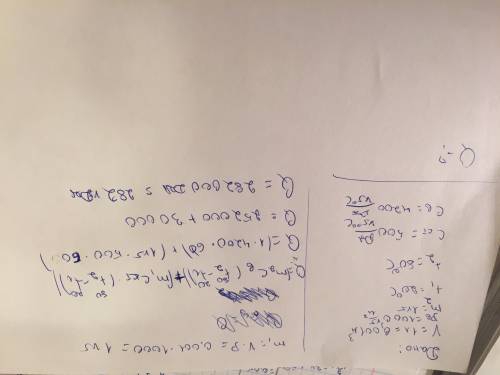 Дано:
V = 1л = 0,001 м³
ρв = 1000 кг/м³
m₂ = 1кг
t₁ = 20°C
t₂ = 80°C
Cст = 500 Дж/кг°C
Cв = 4200 Дж/кг°C
Q - ?
m₁ = V · ρ = 0,001 · 1000 = 1 кг
Q = (m₁ Cв (t₂ - t₁)) + (m₁ Cст · (t₂ - t₁))
80 20 80 20
Q = (1 · 4200 · 60) + (1кг · 500 · 60)
Q = 252000 + 30000
Q = 282000 Дж = 282 кДж